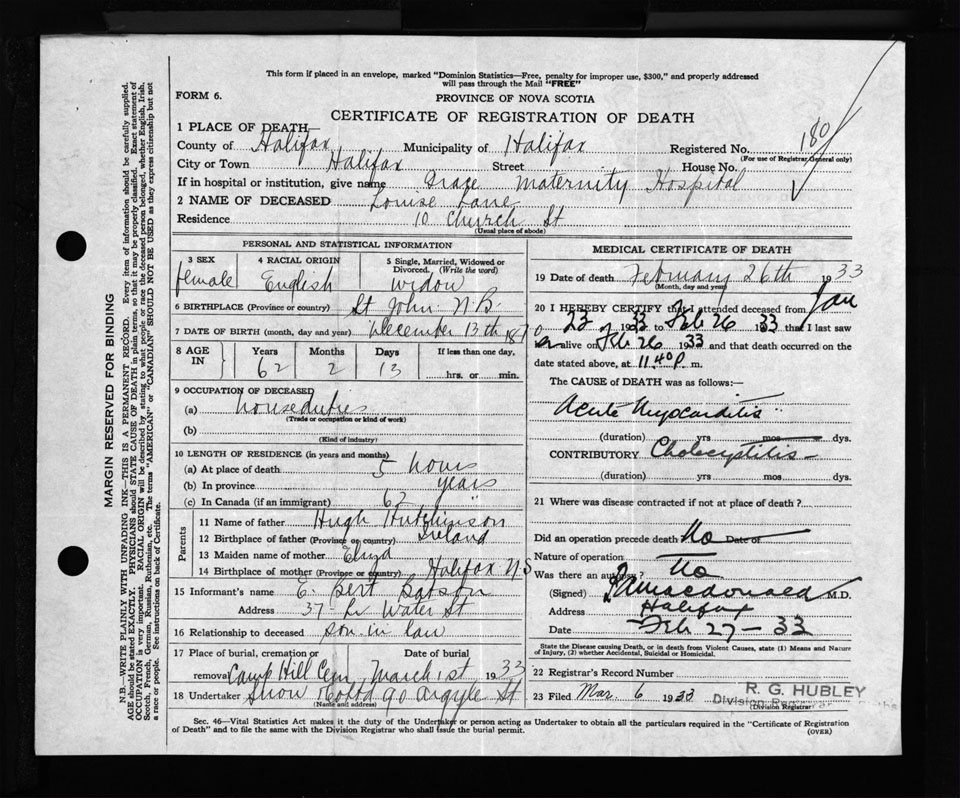 This form if placed in an envelope, marked "Dominion Statistics—Free, penalty for improper use, $300," and properly addressed
will pass through the Mail "FREE"
FORM 6.
PROVINCE OF NOVA SCOTIA
CERTIFICATE OF REGISTRATION OF DEATH
1 PLACE OF DEATH—
County of Halifax Municipality of Halifax Registered No. 180
(For use of Registrar General only)
City or Town Halifax Street House No.
If in hospital or institution, give name Grace Maternity Hospital
2 NAME OF DECEASED Louise Lane
Residence 10 Church St
(Usual place of abode)
PERSONAL AND STATISTICAL INFORMATION
3 SEX 4 RACIAL ORIGIN 5 Single, Married, Widowed or
Divorced. (Write the word)
female English widow
6 BIRTHPLACE (Province or country) St John N.B.
7 DATE OF BIRTH (month, day and year) December 13th 1870
8 AGE IN Years Months Days If less than one day,
62 2 13 hrs. or min.
9 OCCUPATION OF DECEASED
(a) houseduties
(Trade or occupation or kind of work)
(b)
(Kind of industry)
10 LENGTH OF RESIDENCE (in years and months)
(a) At place of death 5 hours
(b) In province years
(c) In Canada (if an immigrant) 62 "
Parents
11 Name of father Hugh Hutchinson
12 Birthplace of father (Province or country) Ireland
13 Maiden name of mother
14 Birthplace of mother (Province or country) Halifax N S
15 Informant's name E. Bert
Address 37 Water St
16 Relationship to deceased son in law
17 Place of burial, cremation or Date of burial
removal Camp Hill Cem March 1st 1933
18 Undertaker Snow 90 Argyle St
(Name and address)
MEDICAL CERTIFICATE OF DEATH
19 Date of death February 26th 1933
(Month, day and year)
20 I HEREBY CERTIFY that I attended deceased from Jan
23 1933 to Feb 26 1933 that I last saw
alive on Feb 26 1933 and that death occurred on the
date stated above, at 11.40 P. m.
The CAUSE of DEATH was as follows:—
Acute Myocarditis
(duration) yrs mos dys.
CONTRIBUTORY Cholecystitis
(duration) yrs mos dys.
21 Where was disease contracted if not at place of death?
Did an operation precede death No Date of
Nature of operation
Was there an autopsy? No
(Signed) Macdonald M.D.
Address Halifax
Date Feb 27 — 33
State the Disease causing Death, or in death from Violent Causes, state (1) Means and Nature
of Injury, (2) whether Accidental, Suicidal or Homicidal.
22 Registrar's Record Number
23 Filed Mar. 6 1933 R. G. HUBLEY
Division Registrar
(Division Registrar)
Sec. 46—Vital Statistics Act makes it the duty of the Undertaker or person acting as Undertaker to obtain all the particulars required in the "Certificate of Registration
of Death" and to file the same with the Division Registrar who shall issue the burial permit.
(OVER)
MARGIN RESERVED FOR BINDING
N.B.—WRITE PLAINLY WITH UNFADING INK—THIS IS A PERMANENT RECORD. Every item of information should be carefully supplied.
AGE should be stated EXACTLY. PHYSICIANS should STATE CAUSE OF DEATH in plain terms, so that it may be properly classified. Exact statement of
OCCUPATION is very important. RACIAL ORIGIN will be described by stating to what people or race the deceased person belonged, whether English, Irish,
Scotch, French, German, Russian, Ruthenian, etc. The terms "AMERICAN" or "CANADIAN" SHOULD NOT BE USED as they express citizenship but not
a race or people. See instructions on back of Certificate.